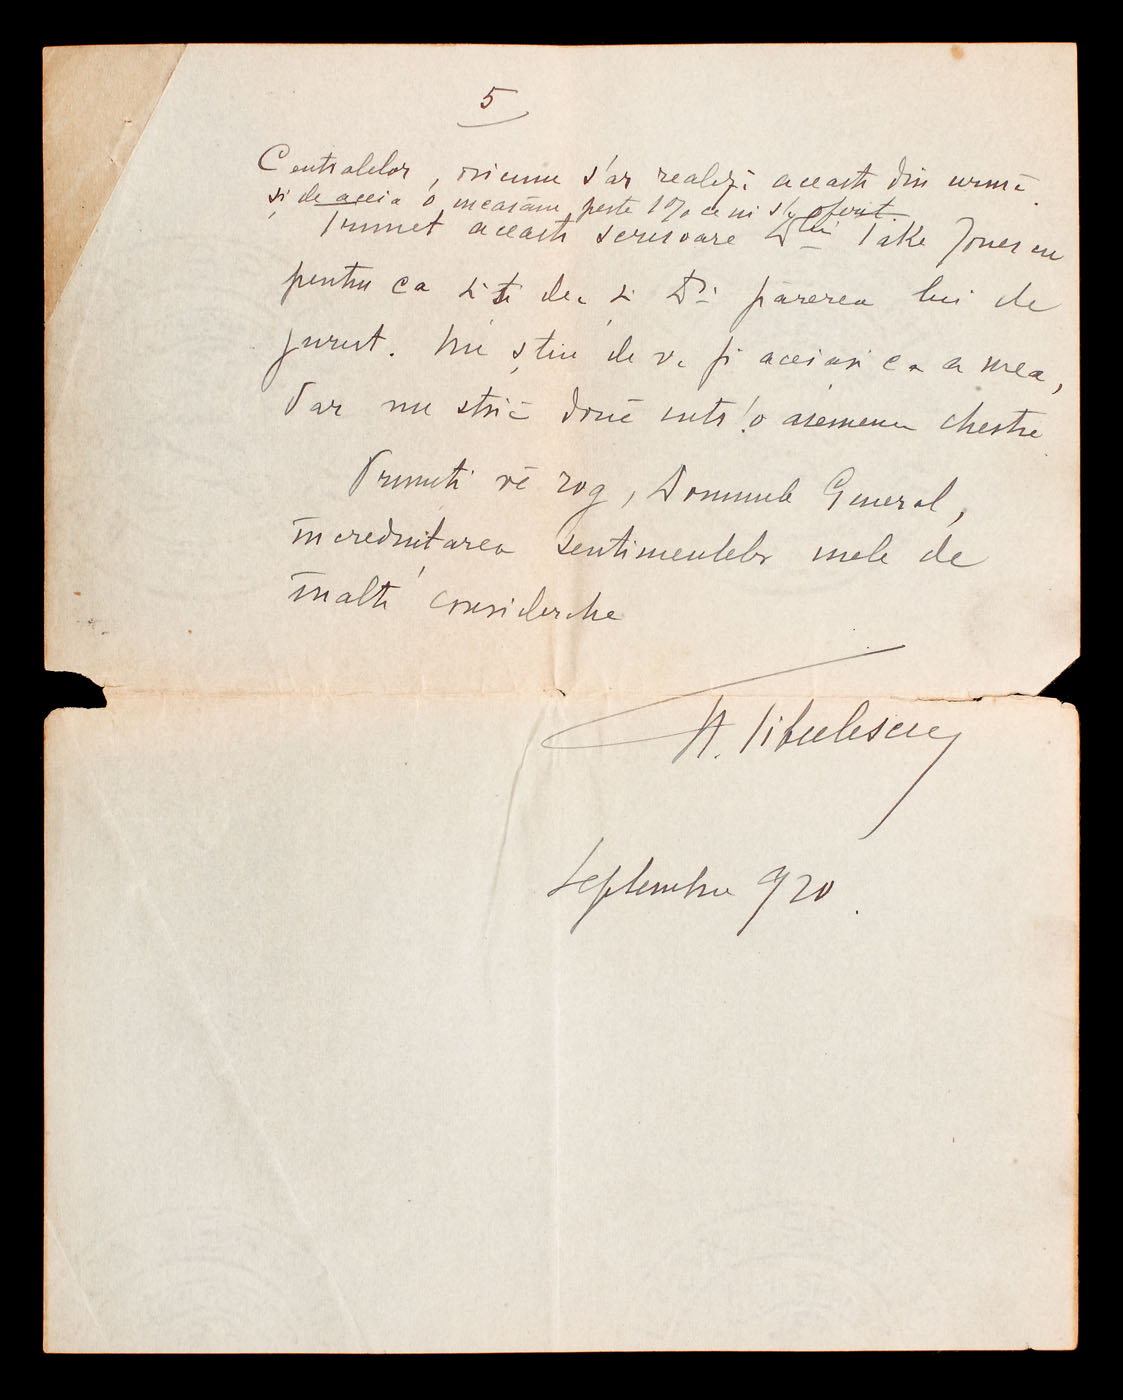 5
Centralelor, oricum s'ar realiza această din urmă.
și de aceia o încasăm peste 1% ce ni s'a oferit
Trimet această scrisoare Dlui Take Jonescu
pentru ca să-ți dea și Dsa părerea lui de
jurist. Nu știu de va fi aceiași ca a mea,
dar nu strică două într'o asemenea chestie
Primiți vă rog, Domnule General,
încredințarea sentimentelor mele de
înaltă considerație
N. Titulescu
Septembrie 920.